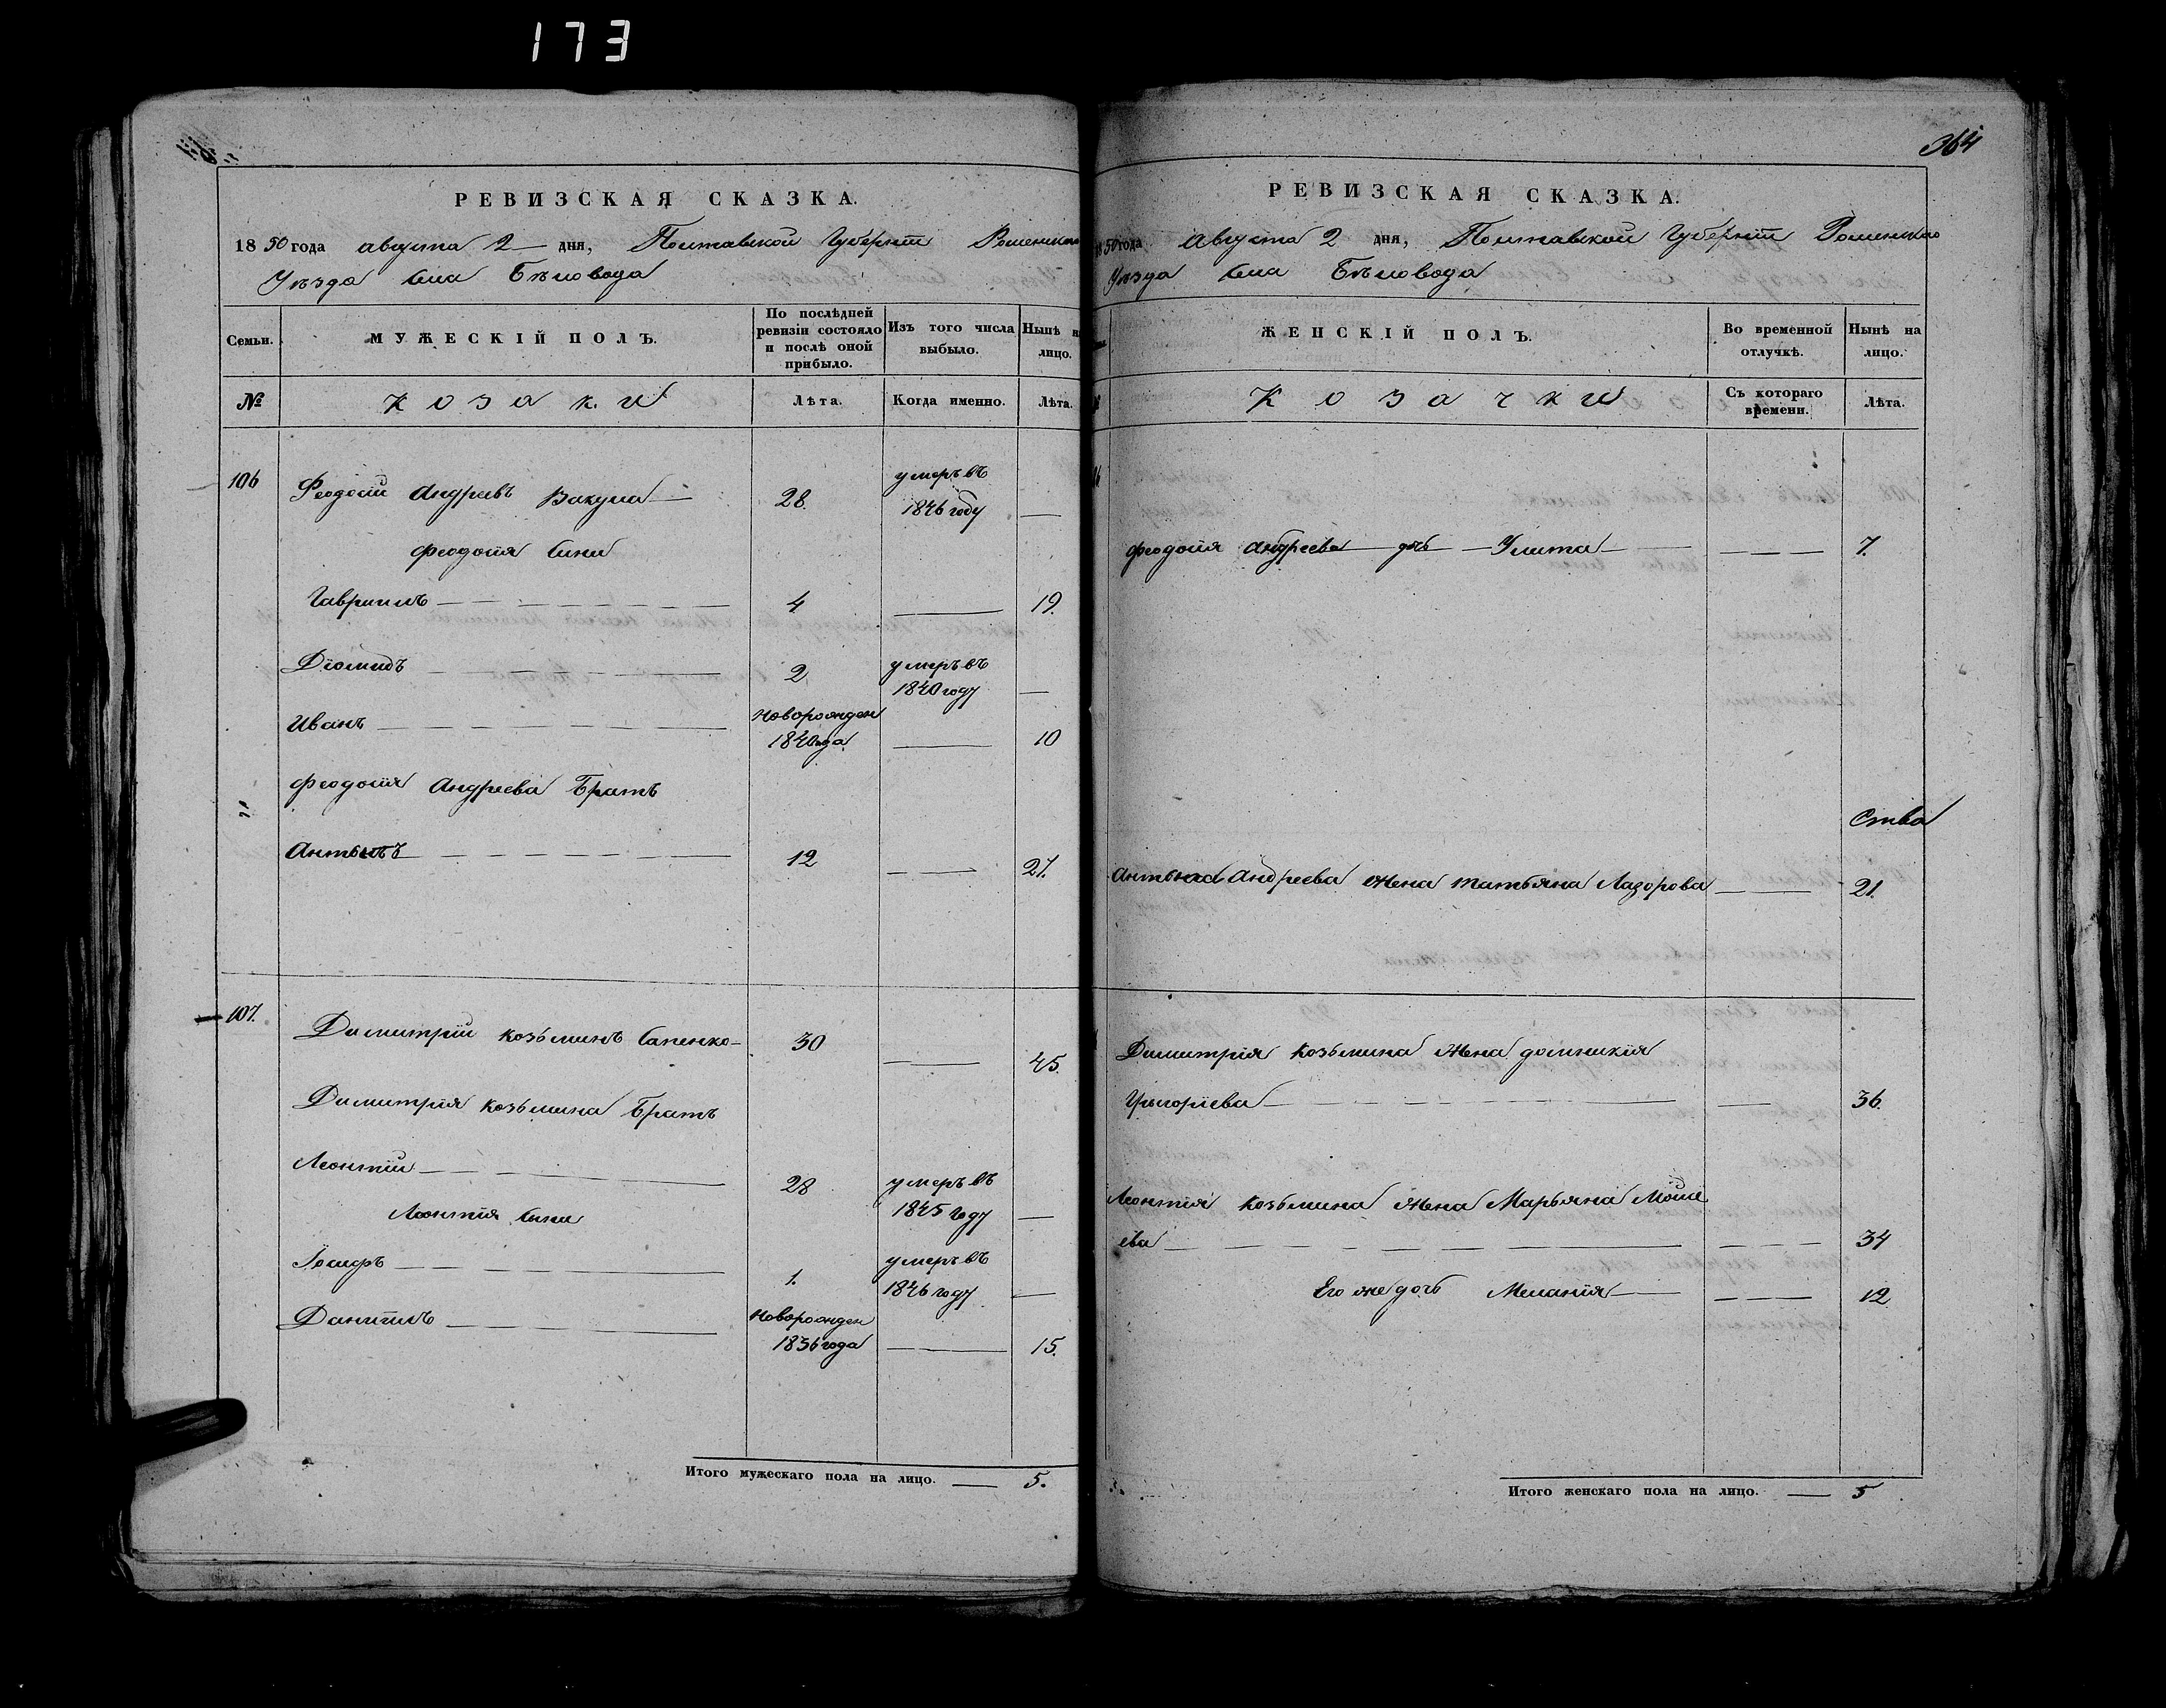 173
РЕВИЗСКАЯ СКАЗКА.
1850 года августа 2 дня, Полтавской Губерніи Роменскаго
Уѣзда Села Бѣловода
Семьи. МУЖЕСКІЙ ПОЛЪ. По послѣдней ревизіи состояло и послѣ оной прибыло. Изъ того числа выбыло. Нынѣ на лицо.
№ Козаки Лѣта. Когда именно. Лѣта.
106 Феодосій Андреевъ Вакула 28. умеръ въ 1846 году —
Феодосія Сини
Гавріилъ 4 — 19.
Діомидъ 2 умеръ въ 1840 году —
Иванъ новорожден 1840 года — 10
Феодосія Андреева Братъ
Антонъ 12 — 27.
107. Димитрій Козьминъ Сапенко 30 — 45.
Димитрія Козьмина Братъ
Леонтій 28 умеръ въ 1845 году —
Леонтія Сини
Іосифъ 1. умеръ въ 1846 году —
Даніилъ новорожден 1836 года — 15.
Итого мужескаго пола на лицо. — 5.
364
РЕВИЗСКАЯ СКАЗКА.
1850 года Августа 2 дня, Полтавской Губерніи Роменскаго
Уѣзда Села Бѣловода
ЖЕНСКІЙ ПОЛЪ. Во временной отлучкѣ. Нынѣ на лицо.
Козачки Съ котораго времени. Лѣта.
Феодосія Андреева дчь Улита — 7.
Антона Андреева жена татьяна Лазорова — 21.
Димитрія Козьмина Жена домникія
Григоріева — 36.
Леонтія Козьмина Жена Марьяна Мойсе
ева — 34
Его же дочь Меланія — 12
Итого женскаго пола на лицо. — 5